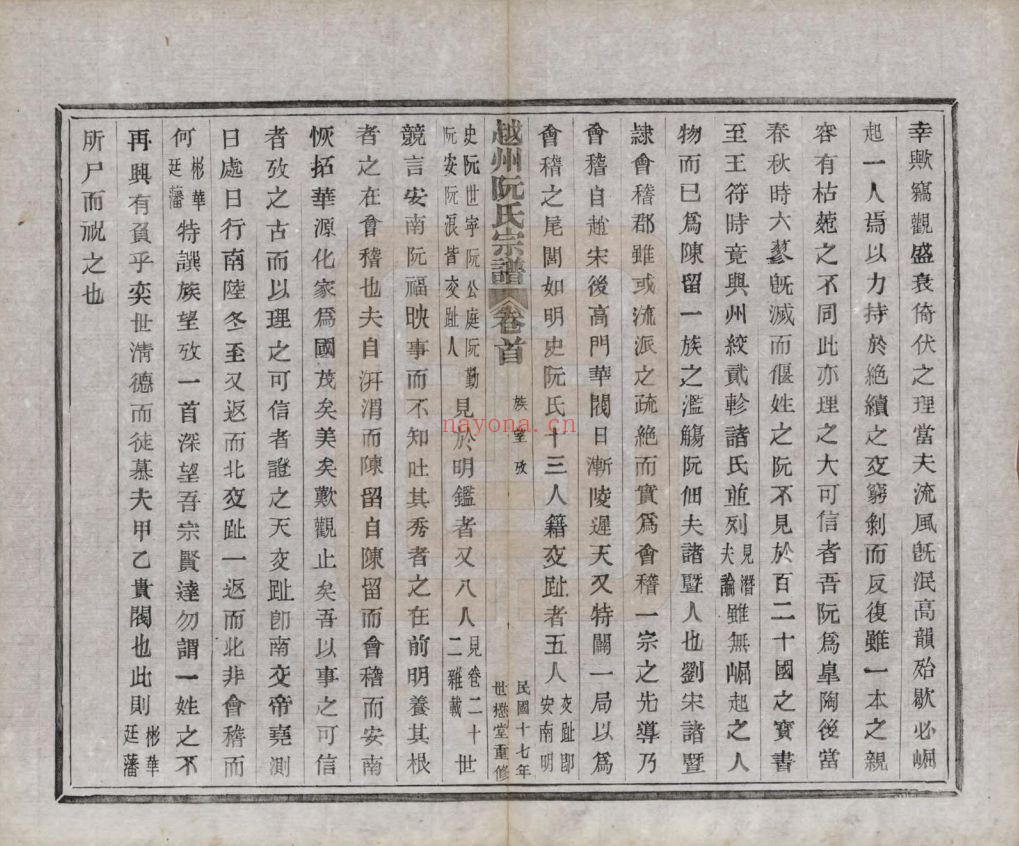 幸歟竊觀盛衰倚伏之理當夫流風旣泯高韻殆歇必崛
起一人焉以力持於絶續之交窮剝而反復雖一本之親
容有枯菀之不同此亦理之大可信者吾阮爲臯陶後當
春秋時六蓼旣滅而偃姓之阮不見於百二十國之寶書
至王符時竟與州絞貳軫諸氏並列見潛夫論雖無崛起之人
物而已爲陳留一族之濫觴阮佃夫諸暨人也劉宋諸暨
隷會稽郡雖或流派之疏絶而實爲會稽一宗之先導乃
會稽自趙宋後高門華閥日漸陵遲天又特闢一局以爲
會稽之尾閭如明史阮氏十三人籍交趾者五人交趾卽安南明
越州阮氏宗譜 卷首 族望攷 民國十七年世懋堂重修
史阮世寧阮公庭阮勤阮安阮浪皆交趾人見於明鑑者又八人見卷二十二雜載世
競言安南阮福映事而不知吐其秀者之在前明養其根
者之在會稽也夫自汧渭而陳留自陳留而會稽而安南
恢拓華源化家爲國茂矣美矣歎觀止矣吾以事之可信
者攷之古而以理之可信者證之天交趾卽南交帝堯測
日處日行南陸冬至又返而北交趾一返而北非會稽而
何彬華廷藩特譔族望攷一首深望吾宗賢達勿謂一姓之不
再興有負乎奕世清德而徒慕夫甲乙貴閥也此則彬華廷藩
所尸而祝之也
nayona.cn